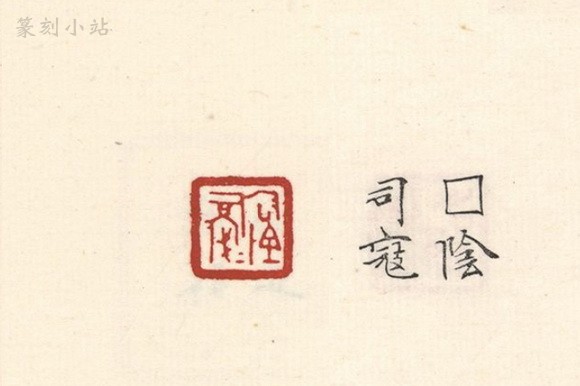 篆刻小站
□陰
司寇